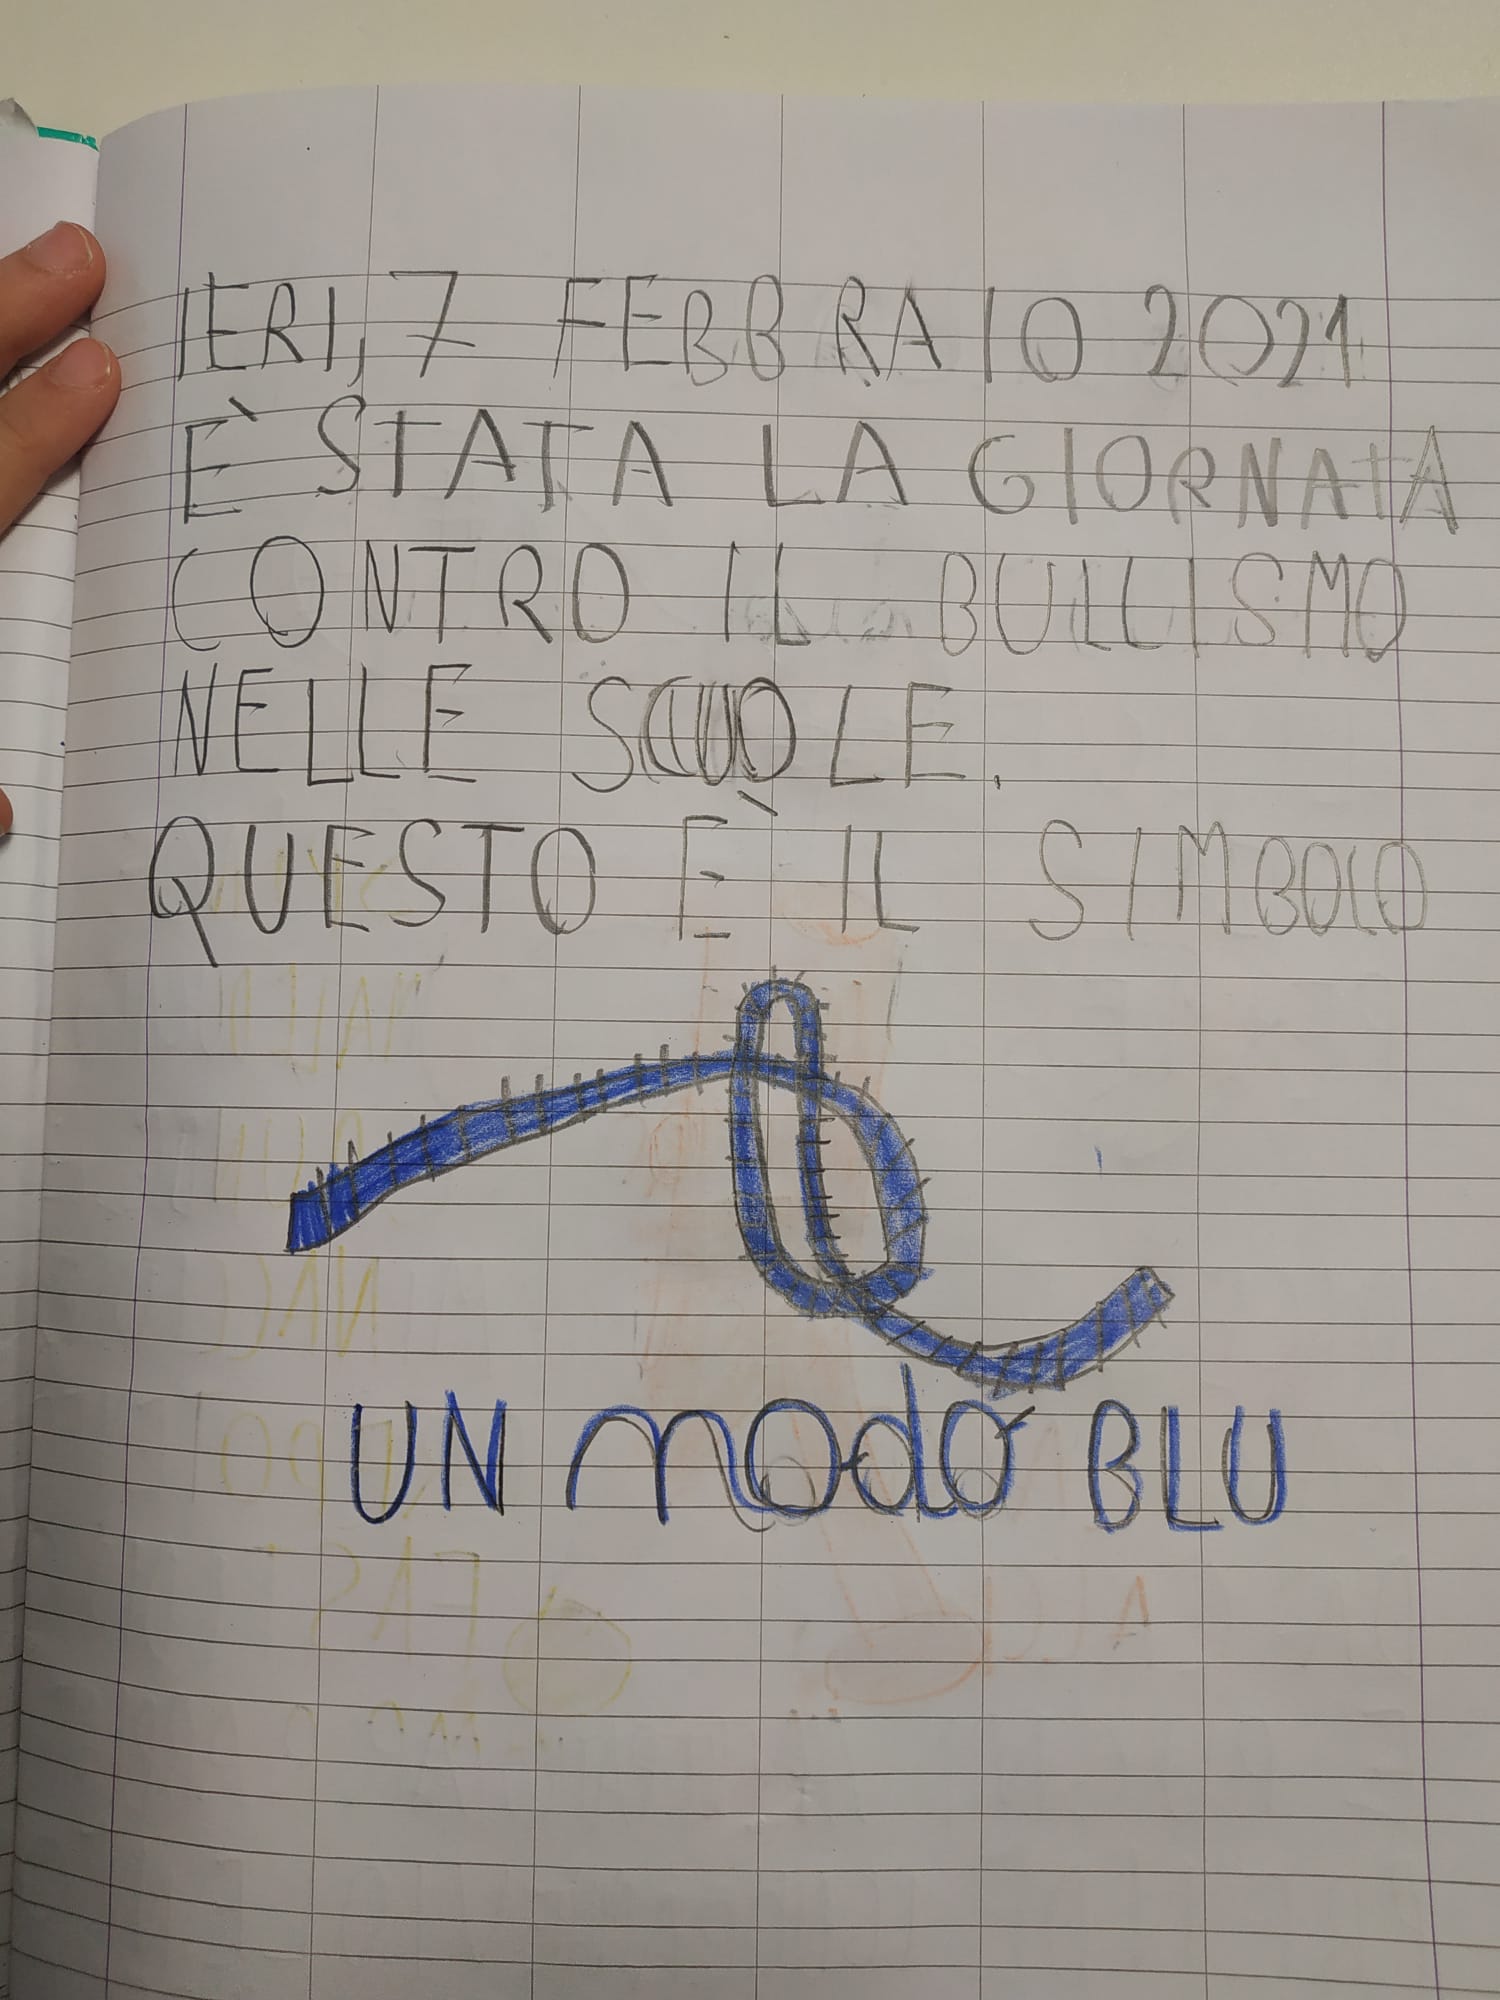 IERI, 7 FEBBRAIO 2021
È STATA LA GIORNATA
CONTRO IL BULLISMO
NELLE SCUOLE.
QUESTO È IL SIMBOLO
UN MODO BLU